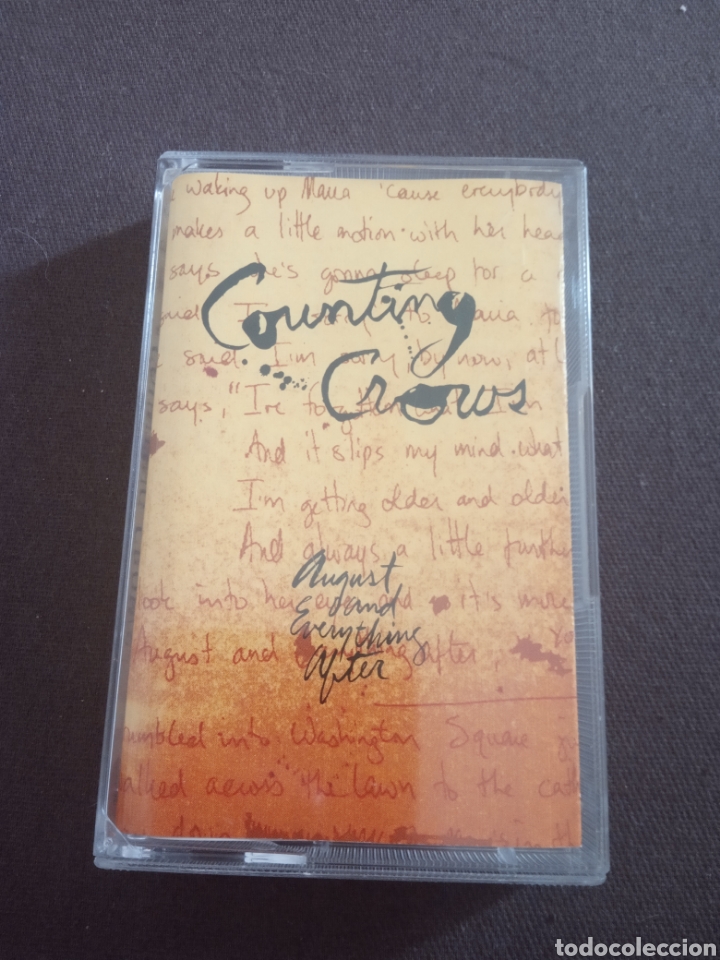 waking up Maria 'cause everybody
makes a little motion with her head
says she's gonna sleep for a
Counting
I'm to Maria
said I'm sorry, by now, at
Crows
says, "I've forgotten I'm
And it slips my mind what
I'm getting older and older
And always a little further
August
and
Everything
After
look into her eyes and it's more
August and Everything after,
umbled into Washington Square
alked across the lawn to the cath
down in th
todocoleccion